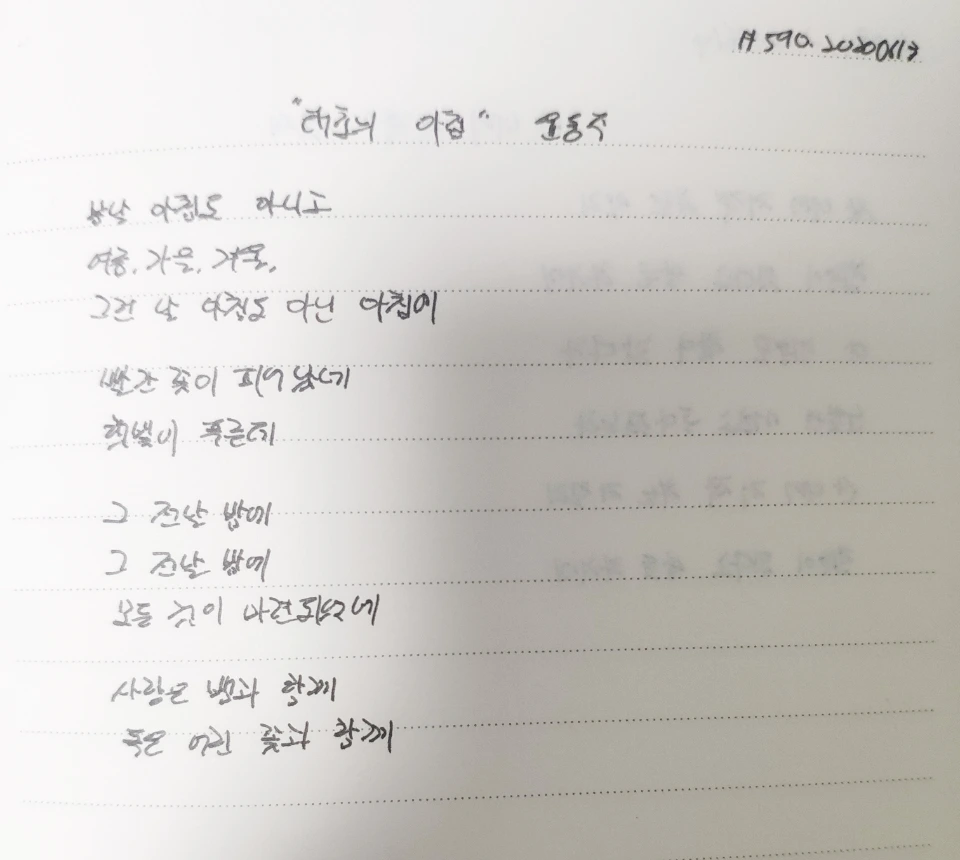 # 590. 20200613
"태초의 아침" 윤동주
봄날 아침도 아니고
여름, 가을, 겨울,
그런 날 아침도 아닌 아침에
빨간 꽃이 피어났네
햇빛이 푸른데
그 전날 밤에
그 전날 밤에
모든 것이 마련되었네
사랑은 뱀과 함께
독은 어린 꽃과 함께